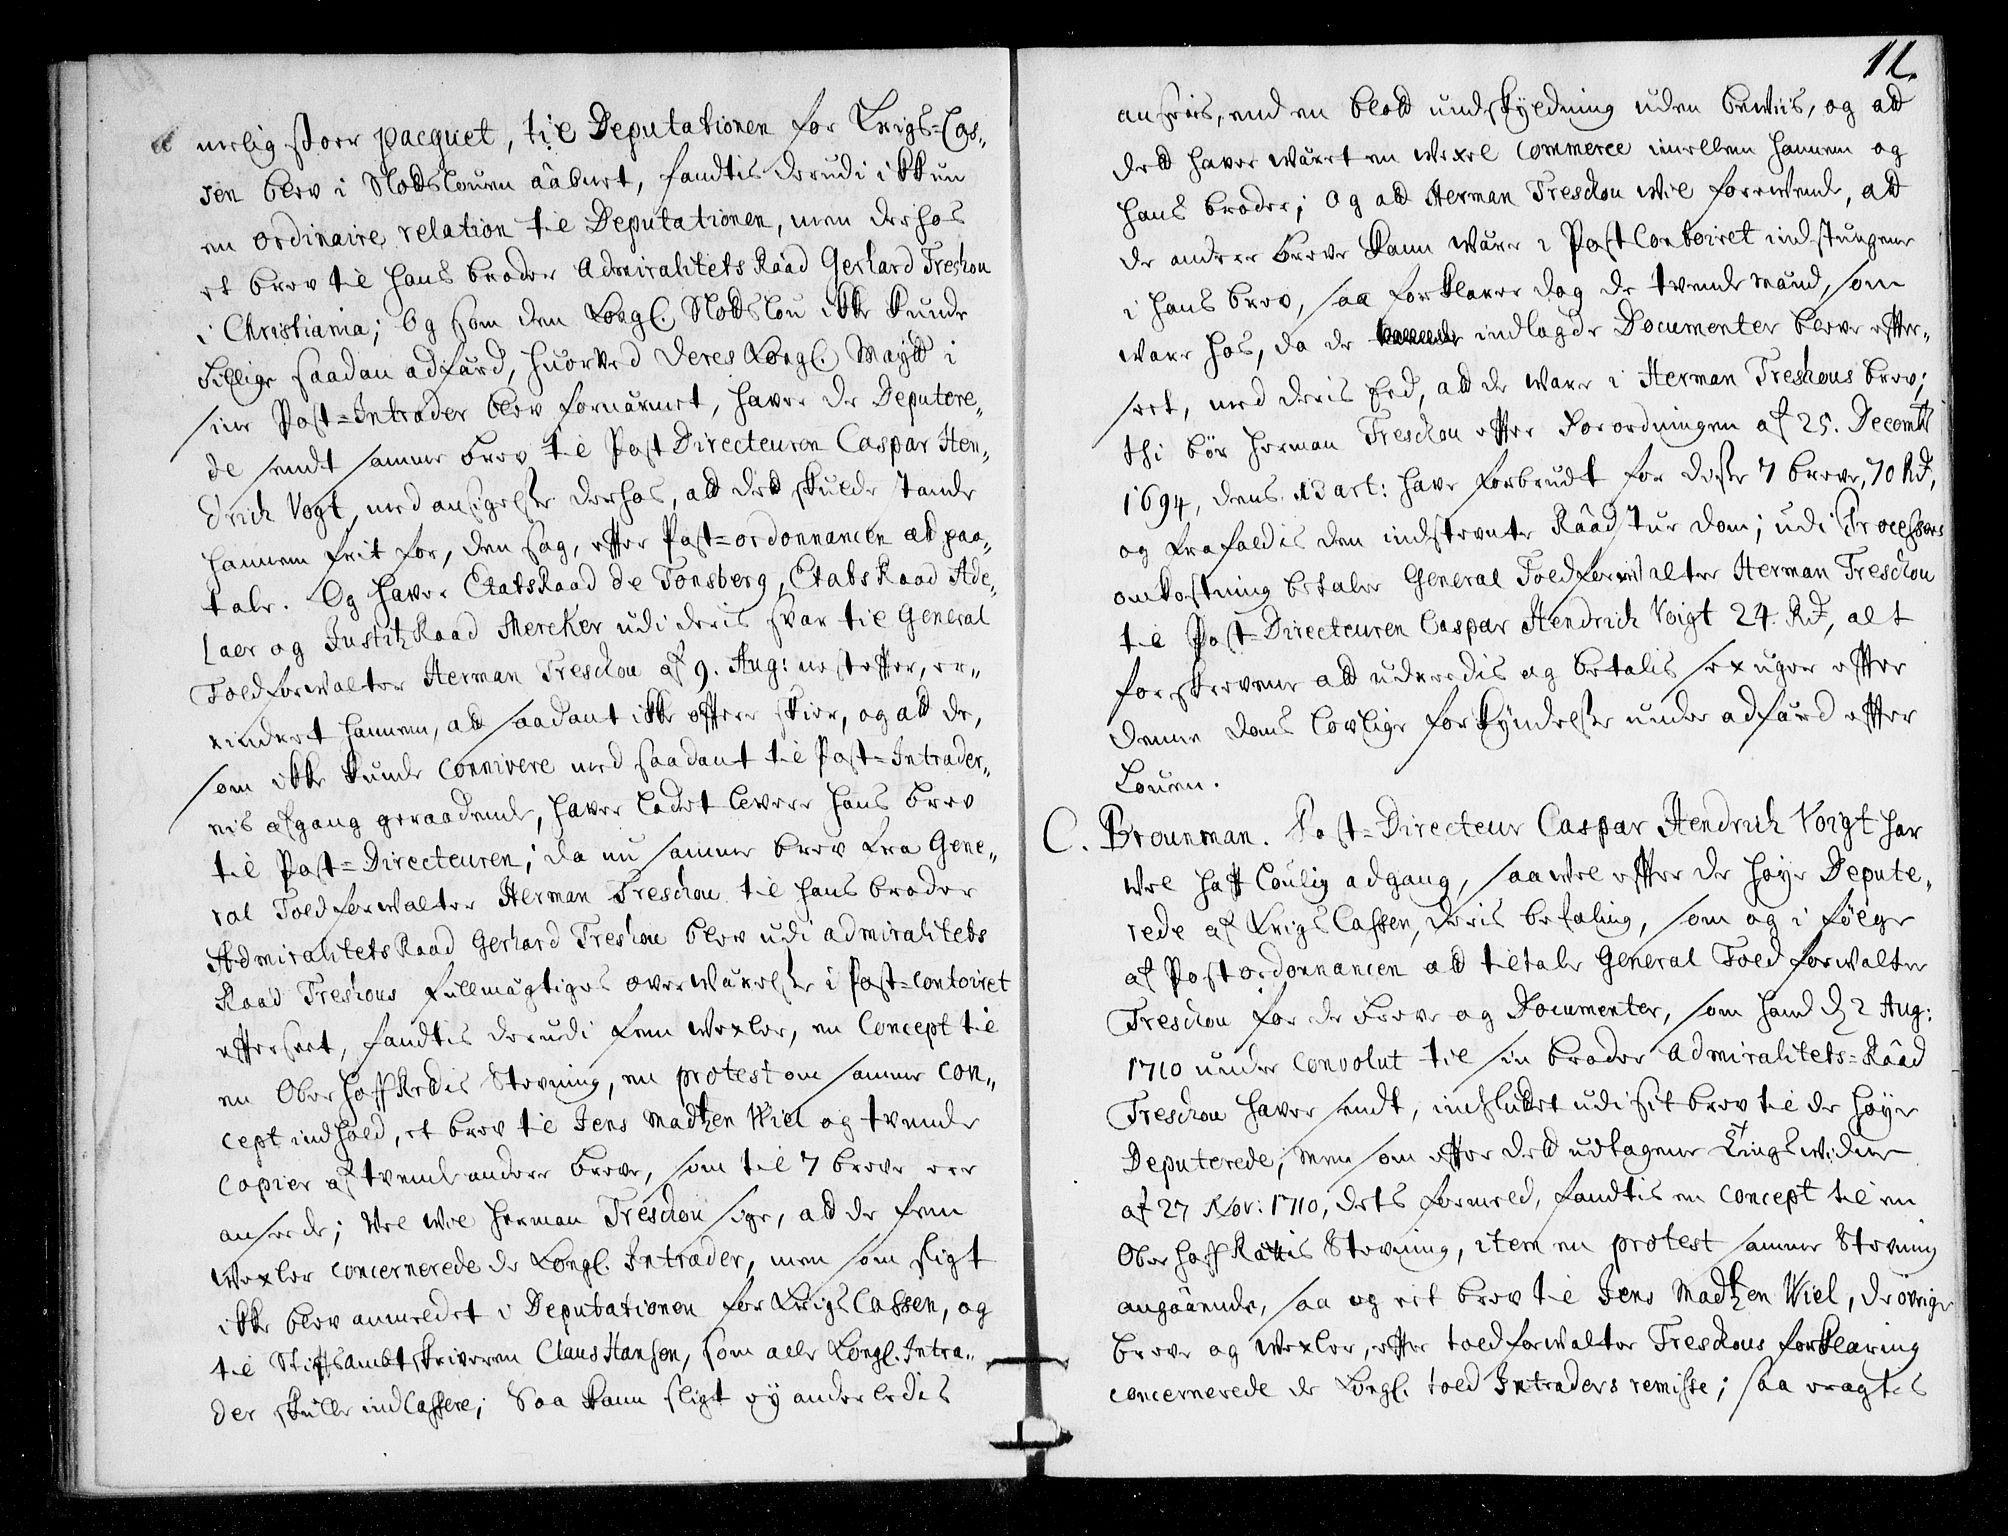 nerlig stoer pacquet, til Deputationen for Krigs=Cas„
sen blev i Slodsloven aabnet, fandtis derudi ikkun
en ordinaire relation til Deputationen, men derhos
et brev til hans broder Admiralitets Raad Gerhard Treschou
i Christiania; Og som den Kongl. Slodslou ikke kunde
billige saadan adfärd, huorved Deres Kongl. Maytt i
sine Post=Intrader blev fornärmet, haver de Deputere„
de sendt samme brev til Post Directeuren Caspar Hen„
drich Vogt, med ansigelse derhos, att dett skulde stande
hannem frit for, den sag, efter Post=ordonnancen att paa„
tale. Og haver Etatsraad de Tonsberg, Etats Raad Ade„
laer og Justitz Raad Mercker udi deris svar til General
Toldforvalter Herman Treschou af 9. Aug: nestefter, er„
indret hannem, att saadant ikke oftere skier, og att de,
som ikke kunde connivere med saadant til Post=Intrader„
nis afgang geraadende, haver ladet levere hans brev
til Post=Directeuren; da nu samme brev fra Gene„
ral Toldforvalter Herman Treschou til hans broder
Admiralitets Raad Gerhard Treschou blev udi admiralitets
Raad Treschous fuldmägtiges overwärelse i Post=contoiret
efterseet, fandtis derudi fem vexler, en Concept til
en Oberhoffretis Stevning, en protest om samme con„
cept indhold, et brev til Jens Madtzen Wiel og tvende
copier af tvende andere breve, som til 7 breve ere
ansede; Vel vil Herman Treschou sige, att de fem
vexler concernerede de Kongl. Intrader, men som sligt
ikke blev anmeldet i Deputationen for Krigs Cassen, og
til Stiftsambtskriveren Claus Hansen, som alle Kongl. Intra„
der skulle indcassere; Saa kann sligt ey anderledis
11.
ansees, end en blott undskyldning uden beviis, og att
dett haver wäret en vexel commerce imellem hannem og
hans broder; og att Herman Treschou vil forevende, att
de andere breve kann wäre i Post Contoiret indstungene
i hans brev, saa forklarer dog de tvende mänd, som
ware hos, da de indlagde Documenter bleve efter„
seet, med deris Eed, att de ware i Herman Treschous brev;
thi bör Herman Treschou efter Forordningen af 25. Decembr
1694, dens 13 art: have forbrudt for disse 7 breve, 70 Rd,
og frafaldis den indstevnte Raadstue dom; udi Processens
omkostning betaler General Toldforvalter Herman Treschou
til Post-Directeuren Caspar Hendrich Voigt 24. Rd, alt
forskrevene att udreedis og betalis sex uger efter
denne doms lovlige forkyndelse under adfärd efter
Louen.
C. Brounman. Post=Directeur Caspar Hendrich Voigt har
vel haft loulig adgang, saavel efter de höye Depute„
rede af Krigs Cassen, deris befaling, som og i fölge
af Post ordonnancen att tiltale General Toldforvalter
Treschou for de breve og Documenter, som hand d 2 Aug:
1710 under convolut til sin broder Admiralitets=Raad
Treschou haver sendt, indsluttet udi sit brev til de höye
Deputerede, men som efter dett udtagene Tingsvidne
af 27 Nov: 1710, dets formeld, fandtis en concept til en
Oberhoff Rättis Stevning, item en protest samme Stevning
angaaende, saa og eet brev til Jens Madtzen Wiel, de övrige
breve og vexler, efter toldforvalter Treschous forklaring
concernerede de Kongl. told Intraders remisse; saa eragtes